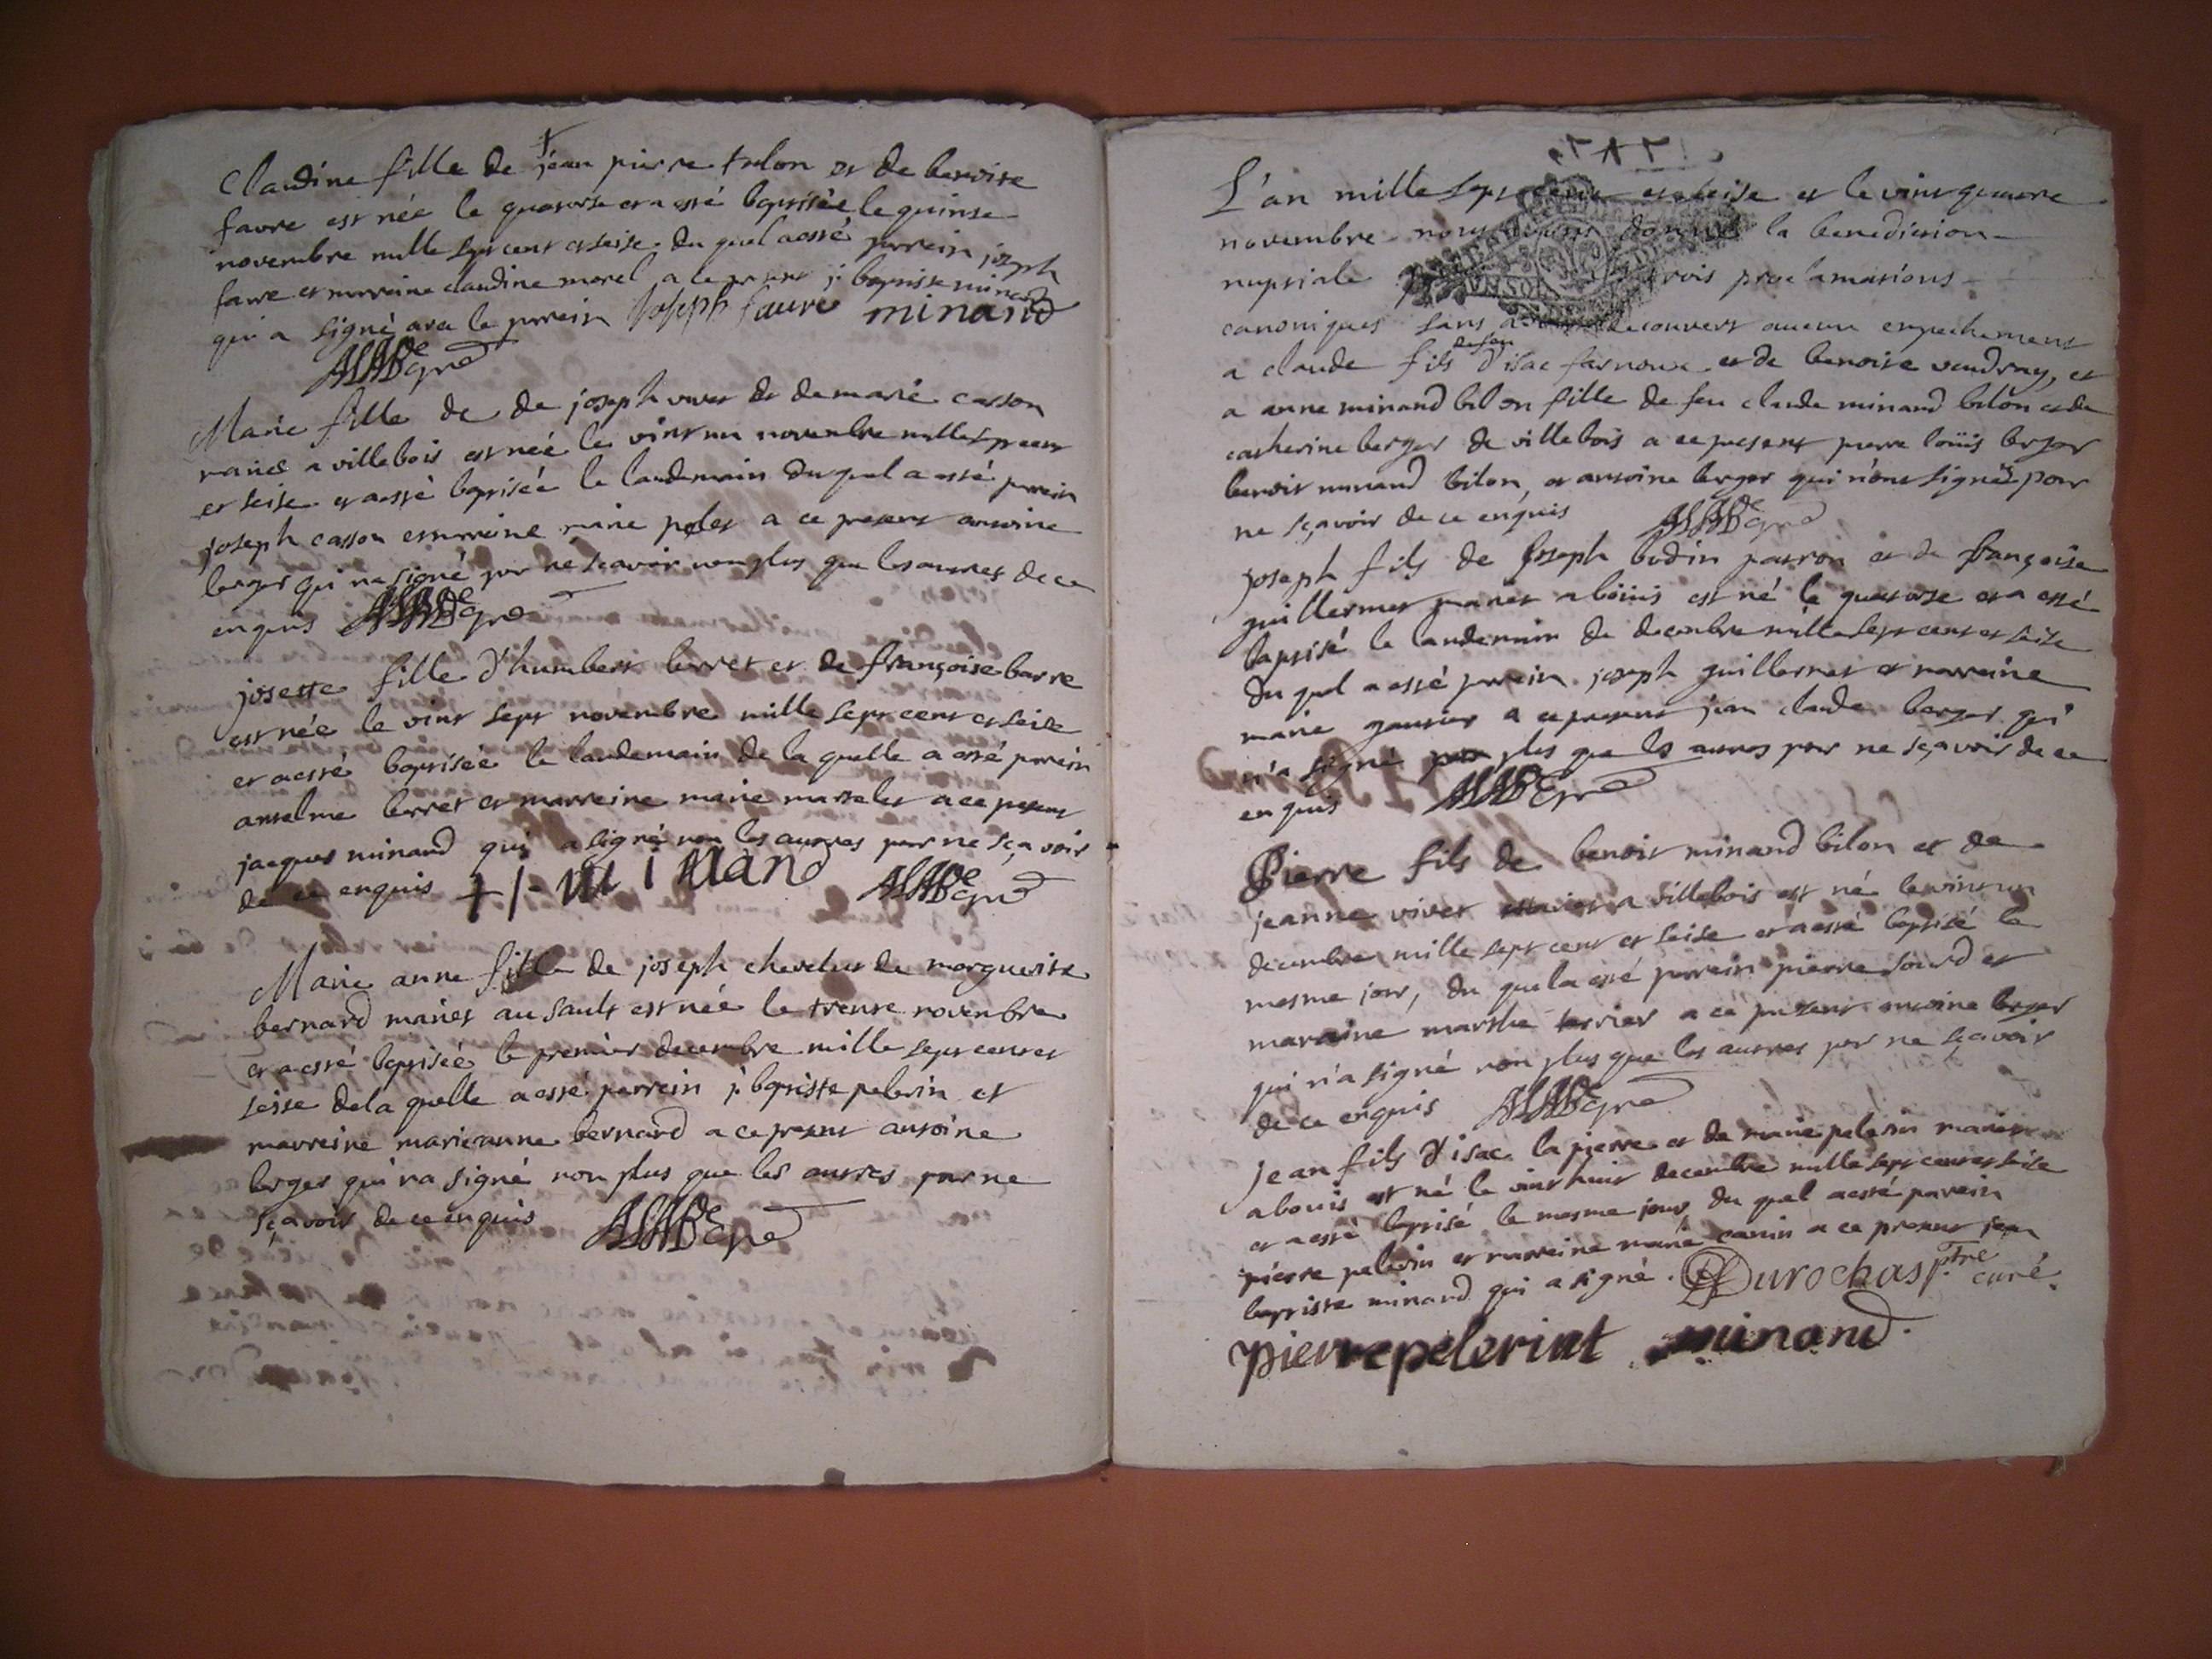 Claudine fille de jean pierre tulon et de benoite
favre est née le quatorse et a esté baptisée le quinse
novembre mille sept cent et seise du quel a esté parrein joseph
favre et marreine claudine morel a ce present j. baptiste minand
qui a signé avec le parrein Joseph favre minand
Marie fille de de joseph vivet et de marie casson
mariés a villebois est née le vint un novembre mille sept cent
et seise et a esté baptisée le landemain du quel a esté parrein
joseph casson et marreine marie a ce present antoine
berger qui n'a signé pour ne scavoir non plus que les autres de ce
enquis
josette fille d'humbert berret et de françoise barre
est née le vint sept novembre mille sept cent et seise
et a esté baptisée le landemain de la quelle a esté parrein
anselme berret et marreine marie a ce present
jacques minand qui a signé non les autres pour ne sçavoir
de ce enquis + j- minand
Marie anne fille de joseph de marguerite
bernard mariés au sault est née le trente novembre
et a esté baptisée le premier decembre mille sept cent et
seise de la quelle a esté parrein j. baptiste pelerin et
marreine marie anne bernard a ce present antoine
berger qui n'a signé non plus que les autres pour ne
sçavoir de ce enquis
L'an mille sept cent et seise et le vint quatre
novembre nous avons donné la benediction
nuptiale trois proclamations
canoniques sans a decouvert aucun empechement
a claude fils de feu d'isac farnoux et de benoite vendray, et
a anne minand bilon fille de feu claude minand bilon et de
catherine berger de villebois a ce present pierre loüis berger
benoit minand bilon, et antoine berger qui n'ont signés pour
ne sçavoir de ce enquis
joseph fils de joseph budin patron et de françoise
guillermet mariés a boüis est né le quatorse et a esté
baptisé le landemain de decembre mille sept cent et seise
du quel a esté parrein joseph guillermet et marreine
marie gautier a ce present jean claude berger qui
n'a signé non plus que les autres pour ne sçavoir de ce
enquis
Pierre fils de benoit minand bilon et de
jeanne vivet mariés a villebois est né le vint un
decembre mille sept cent et seise et a esté baptisé le
mesme jour, du quel a esté parrein pierre sourd et
maraine marthe terrier a ce present antoine berger
qui n'a signé non plus que les autres pour ne sçavoir
de ce enquis
jean fils d'isac la pierre et de marie pelerin mariés
a bouis est né le vint huit decembre mille sept cent et seise
et a esté baptisé le mesme jour, du quel a esté parrein
pierre pelerin et marreine marie canin a ce present jean
baptiste minand qui a signé. Durochas ptre curé.
pierre pelerint minand.